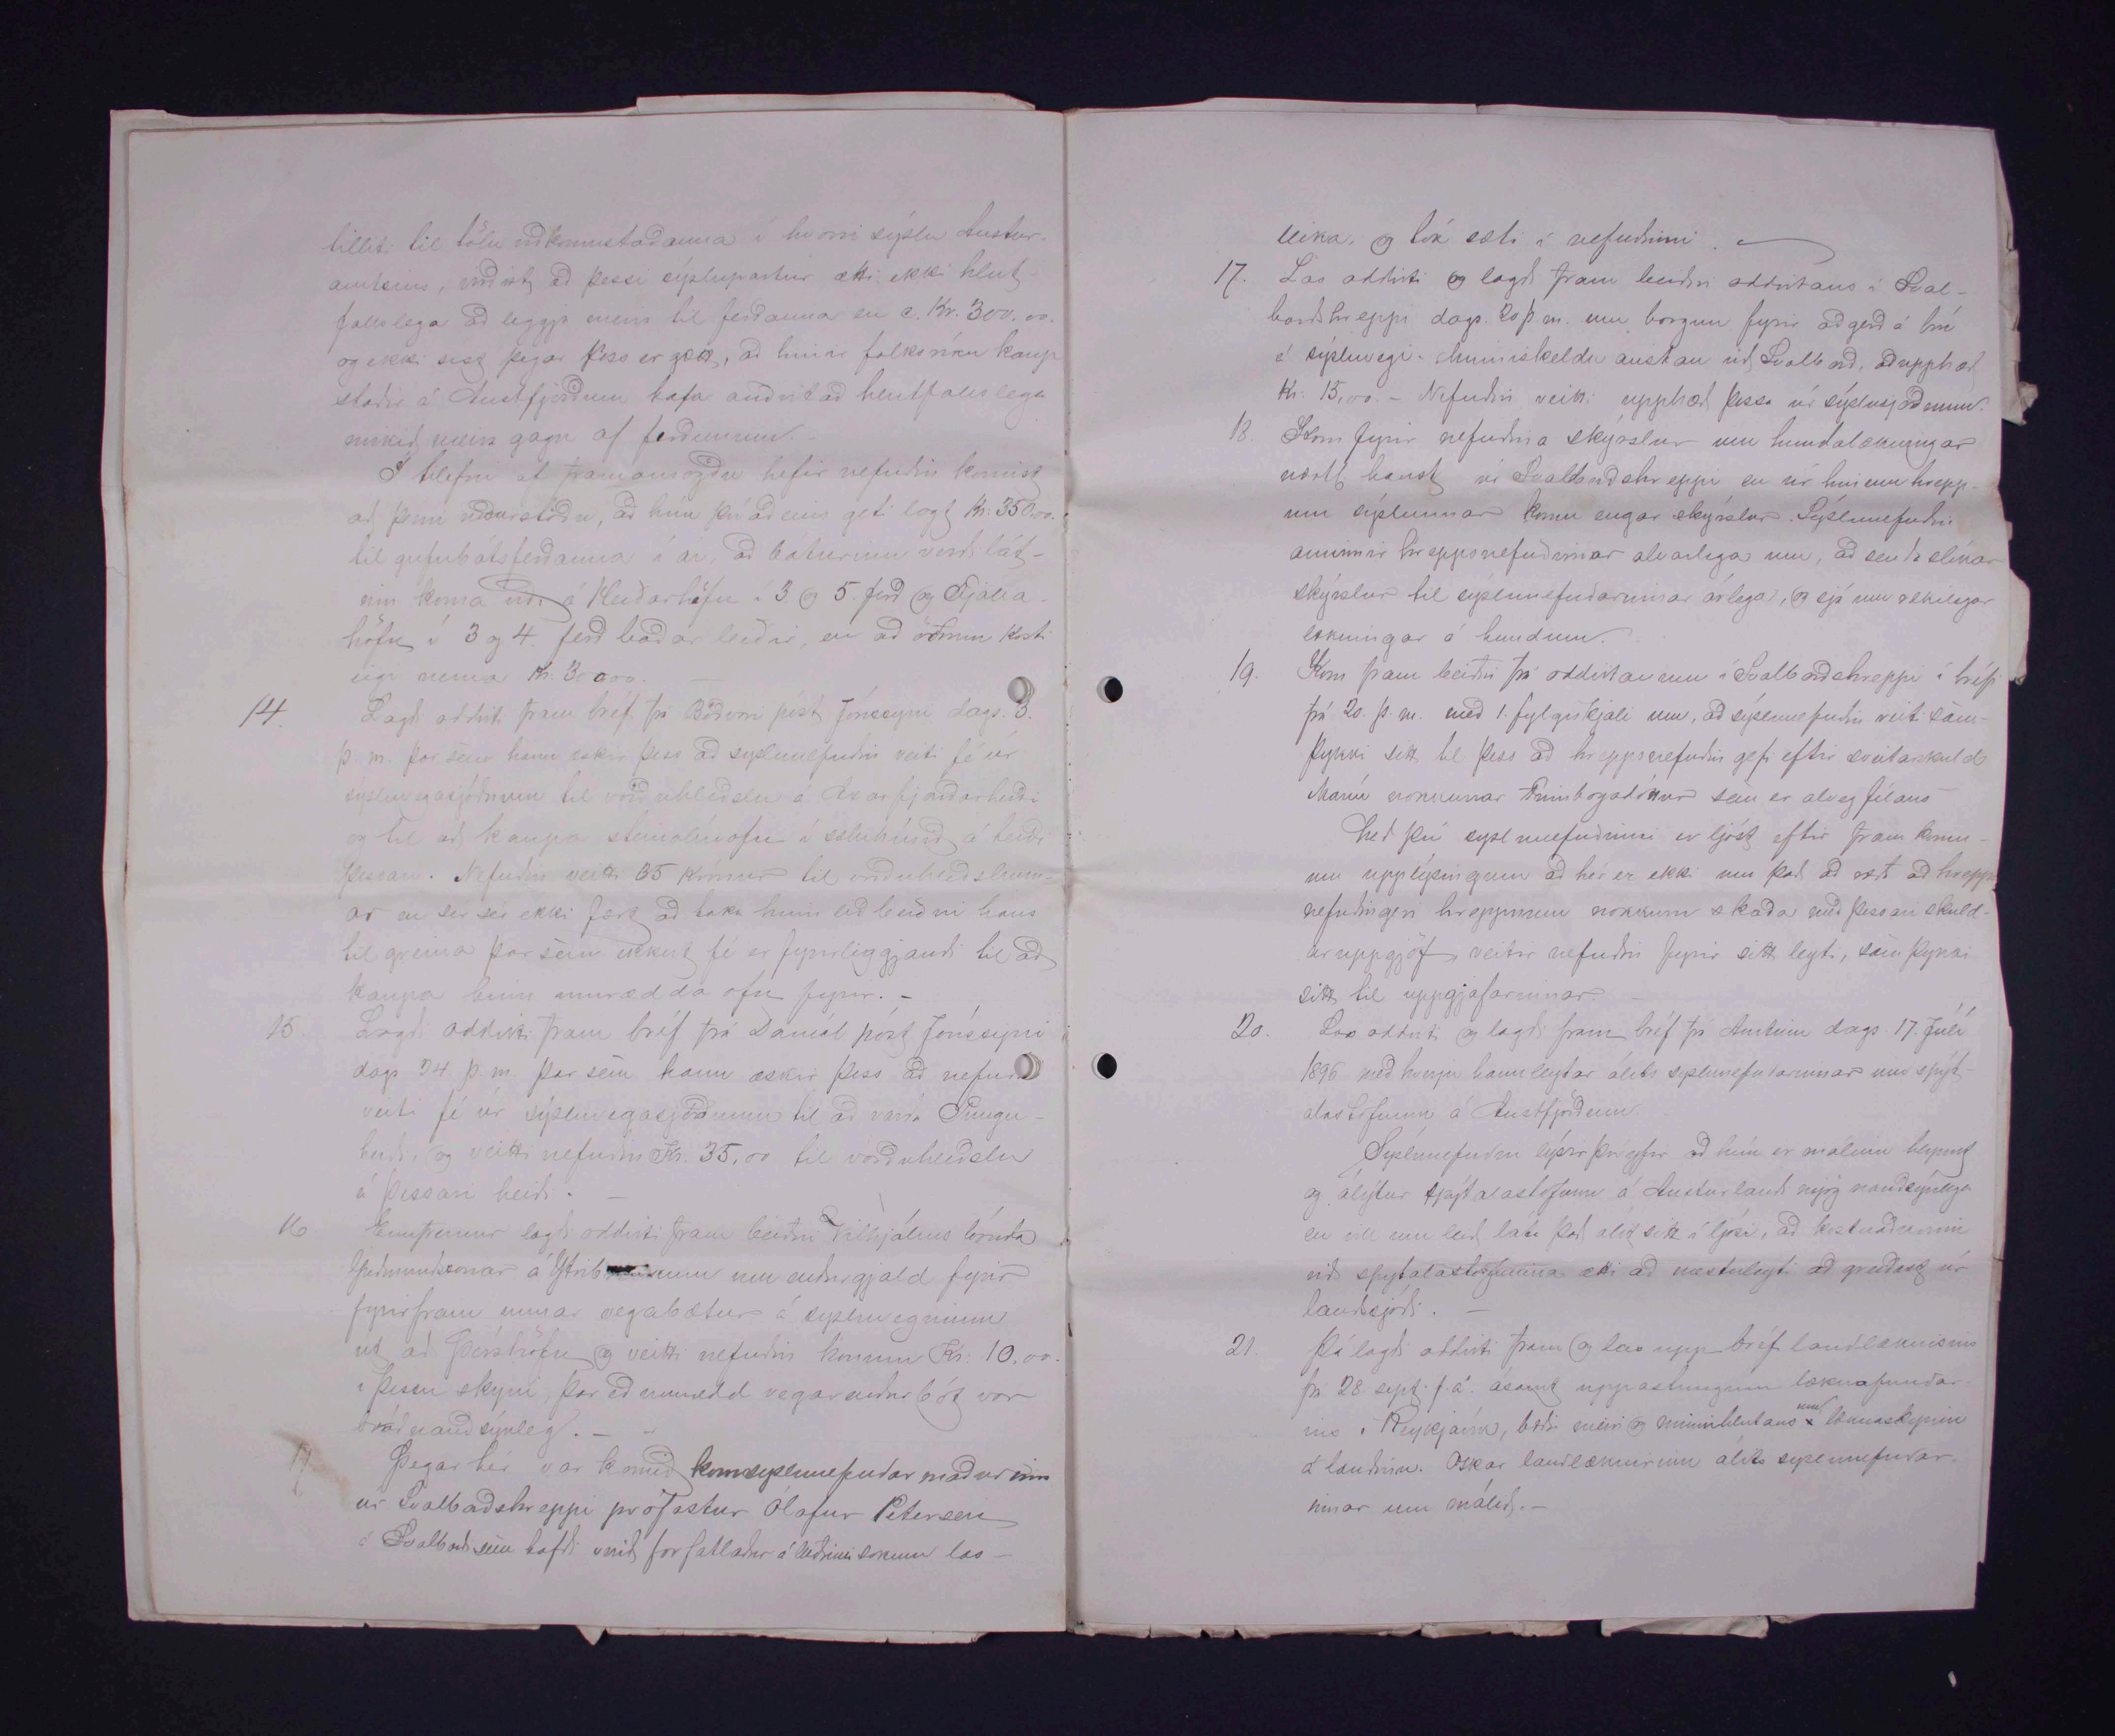 tilliti til tölu viðkomustaðanna í hverri sýslu Austur-
amtsins, virðist að þessi sýslupartur ætti ekki hlut-
fallslega að leggja meir til ferðanna en c. Kr. 300.00.
og ekki síst þegar þess er gætt, að hinir fólksríku kaup
staðir á Austfjörðum hafa auðvitað hlutfallslega
mikið meira gagn af ferðunum.
Í tilefni af framansögðu hefir nefndin komist
að þeirri niðurstöðu, að hún því aðeins geti lagt Kr. 350,00.
til gufubátsferðanna í ár, að báturinn verði lát-
inn koma við á Heiðarhöfn í 3. og 5. ferð og Fjalla-
höfn í 3 og 4. ferð báðar leiðir, en að öðrum kosti
eigi nema Kr. 30000.
14. Lagði oddviti fram bréf frá Böðvari póst Jónssyni dags. 3.
þ. m. þar sem hann æskir þess að sýslunefndin veiti fé úr
sysluvegasjóðnum til vörðuhleðslu á Axarfjarðarheiði
og til að kaupa steinolíuofn í sæluhúsið á heiði
þessari. Nefndin veitti 35 krónur til vörðuhleðslunn-
ar en sér sér ekki fært að taka hinn lið beiðni hans
til greina þar sem ekkert fé er fyrirliggjandi til að
kaupa hinn umrædda ofn fyrir. -
15. Lagði oddviti fram bréf frá Daníel póst Jónssyni
dags 24. þ. m. þar sem hann æskir þess að nefndin
veiti fé úr sýsluvegasjóðnum til að varða Tungu-
heiði, og veitti nefndin Kr. 35,00 til vörðuhleðslu
á þessari heiði. -
16 Ennfremur lagði oddviti fram beiðni Vilhjálms bónda
Guðmundssonar á um endurgjald fyrir
fyrirfram unnar vegabætur á sysluveginum
út að Þórshöfn og veitti nefndin honum Kr. 10,00.
í þessu skyni, þar eð umrædd vegarendurbót var
bráðnauðsynleg. -
17 Þegar hér var komið kom syslunefndar maðurinn
úr Svalbarðshreppi prófastur Ólafur Petersen
á Svalbarði sem hafði verið forfallaður á leiðinni sökum las-
leika, og tók sæti í nefndinni.
17. Las oddviti og lagði fram beiðni oddvitans í Sval-
barðshreppi dags. 20 þ. m. um borgun fyrir aðgerð á brú
á sýsluvegi austan við Svalbarð, að upphæð
Kr. 15,00. - Nefndin veitti upphæð þessa úr sýslusjóðnum.
18. Kom fyrir nefndina skýrslur um hundalækningar
næstl. haust úr Svalbarðshreppi en úr hinum hrepp-
um sýslunnar komu engar skýrslur. Sýslunefndin
áminnir hreppsnefndirnar alvarlega um, að senda slíkar
skýrslur til sýslunefndarinnar árlega, og sjá um rækilegar
lækningar á hundum.
19. Kom fram beiðni frá oddvitanum í Svalbarðshreppi í bréfi
frá 20. þ. m. með 1. fylgiskjali um, að sýslunefndin veiti sam-
þykki sitt til þess að hreppsnefndin gefi eftir sveitarskuld
Maríu nokkurrar Finnbogadóttur sem er alveg félaus
Með því syslunefndinni er ljóst eftir fram komn-
um upplýsingum að hér er ekki um það að ræða að hrepps
nefndin geri hreppnum nokkurn skaða með þessari skuld-
aruppgjöf, veitir nefndin fyrir sitt leyti, samþykki
sitt til uppgjafarinnar. -
20. Las oddviti og lagði fram bréf frá Amtinu dags. 17. Júlí
1896 með hverju hann leytar álits syslunefndarinnar um spýt-
alastofnun á Austfjörðum
Sýslunefndin lýsir því yfir að hún er málinu hlynnt
og álýtur spýtalastofnun á Austurlandi mjög nauðsynlega
en vill um leið láta það álit sitt í ljósi, að kostnaðurinn
við spytalastofnunina ætti að mestuleyti að greiðast úr
landssjóði. -
21. Þá lagði oddviti fram og las upp bréf landlæknisins
frá 28. sept. f. á. ásamt uppástungum læknafundar-
ins í Reykjavík, bæði meiri og minnihlutans um læknaskipun
á landinu. Óskar landlæknirinn álits syslunefndar-
innar um málið. -